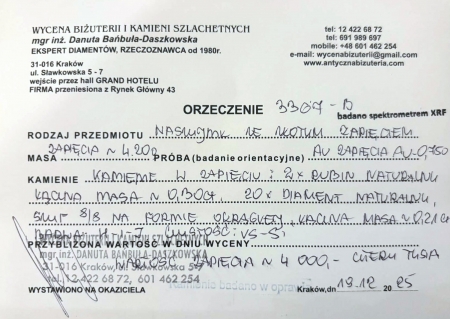 WYCENA BIŻUTERII I KAMIENI SZLACHETNYCH
mgr inż. Danuta Bańbuła-Daszkowska
EKSPERT DIAMENTÓW, RZECZOZNAWCA od 1980r.
31-016 Kraków
ul. Sławkowska 5 - 7
wejście przez hall GRAND HOTELU
FIRMA przeniesiona z Rynek Główny 43
tel: 12 422 68 72
tel: 691 989 697
mobile: +48 601 462 254
e-mail: wycenabizuterii@gmail.com
www.antycznabizuteria.com
ORZECZENIE 3304 - B
badano spektrometrem XRF
RODZAJ PRZEDMIOTU NASZYJNIK ZE ZŁOTYM ZAPIĘCIEM
MASA ZAPIĘCIA ~ 4.20g PRÓBA (badanie orientacyjne) AU ZAPIĘCIA AU-0,750
KAMIENIE KAMIENIE W ZAPIĘCIU: 2x RUBIN NATURALNY
ŁĄCZNA MASA ~ 0,30ct, 20x DIAMENT NATURALNY,
SZLIF 8/8 NA FORMIE OKRĄGŁEJ, ŁĄCZNA MASA ~ 0,21ct
BARWA H-I-J CZYSTOŚĆ: VS-SI
PRZYBLIŻONA WARTOŚĆ W DNIU WYCENY
mgr inż. DANUTA BAŃBUŁA-DASZKOWSKA
WARTOŚĆ ZAPIĘCIA ~ 4 000,-
31-016 Kraków, ul. Sławkowska 5-7
tel. 12 422 68 72, 601 462 254
Kamienie badano w oprawie
WYSTAWIONO NA OKAZICIELA Kraków, dn 19.12 2025